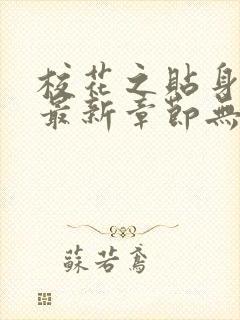 校花之貼身
最新章節無
蘇若鳶